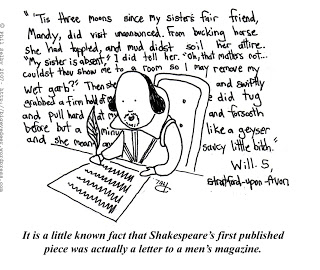 "'Tis three moons since my sister's fair friend,
Mandy, did visit unannounced. From bucking horse
she had toppled, and mud didst soil her attire.
"My sister is absent," I did tell her. "Oh, that matters not...
couldst thou show me to a room so I may remove my
wet garb?" Then she and swiftly
grabbed a firm hold of did tug
and pull hard at m and forsooth
before but a minu like a geyser
and she moan an saucy little bitch."
Will. S,
Stratford-upon-Avon
It is a little known fact that Shakespeare's first published
piece was actually a letter to a men's magazine.